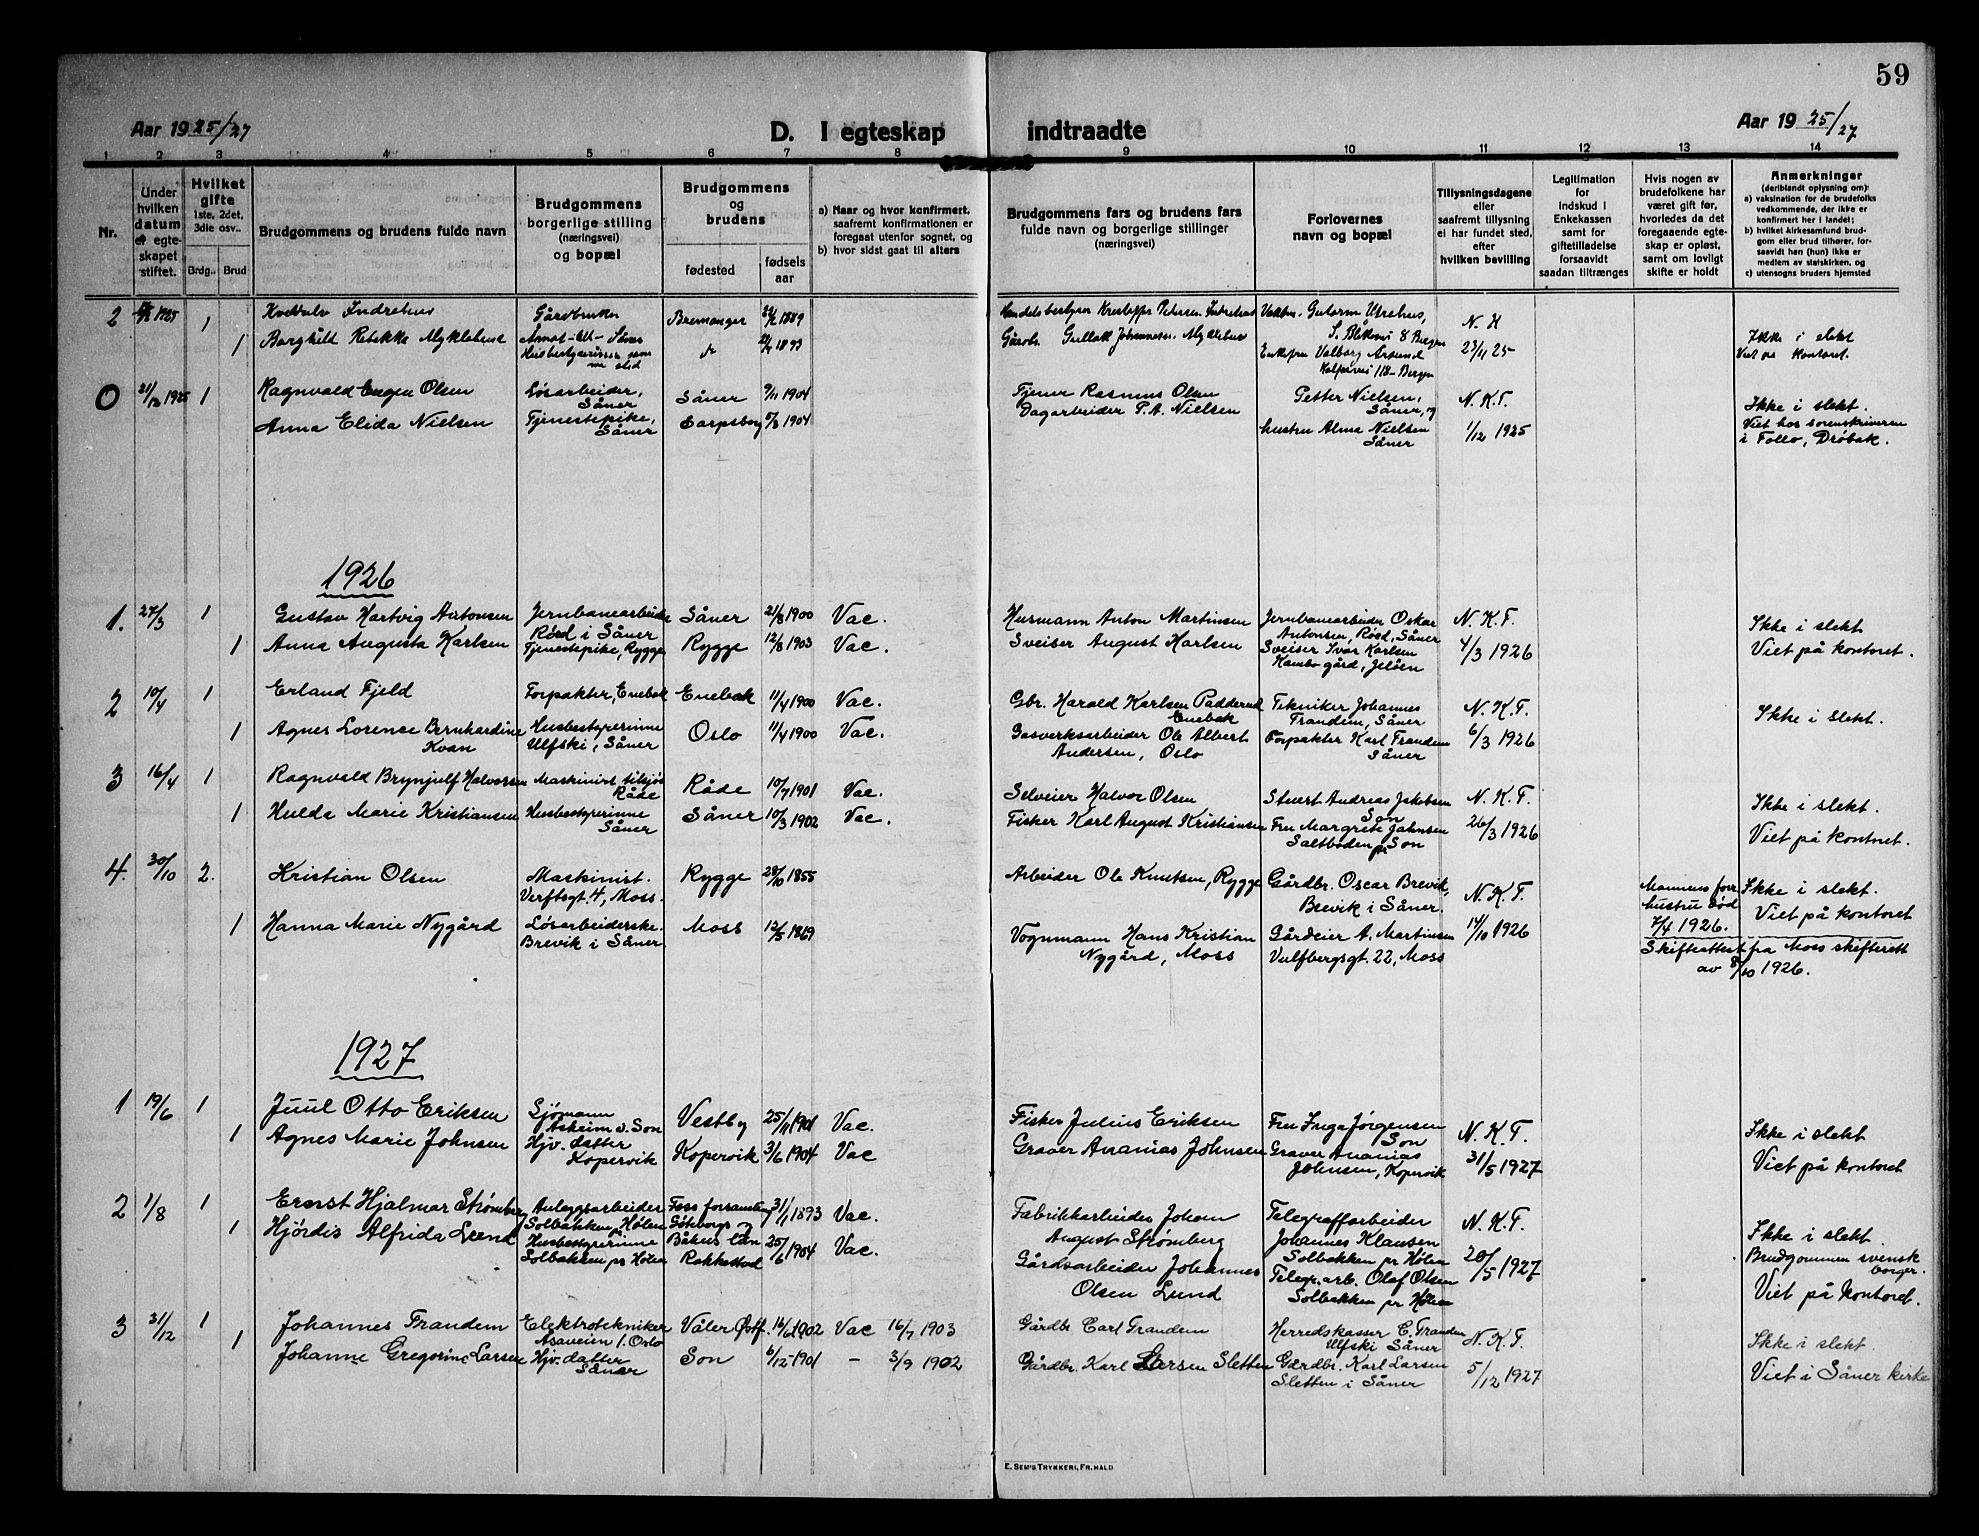 59
Aar 1925/27
D. I egteskap indtraadte
Aar 1925/27
1 2 3 4 5 6 7 8 9 10 11 12 13 14
Nr.
Under hvilken datum et egteskapet stiftet.
Hvilket gifte
1ste, 2det, 3die osv..
Brdg.. Brud
Brudgommens og brudens fulde navn
Brudgommens borgerlige stilling (næringsvei) og bopæl
Brudgommens og brudens
fødested
fødsels aar
a) Naar og hvor konfirmert, saafremt konfirmationen er foregaat utenfor sognet, og
b) hvor sidst gaat til alters
Brudgommens fars og brudens fars
fulde navn og borgerlige stillinger
(næringsvei)
Forlovernes navn og bopæl
Tillysningsdagene eller saafremt tillysning ei har fundet sted, efter hvilken bevilling
Legitimation for indskud i Enkekassen samt for giftetilladelse forsaavidt saadan tiltrænges
Hvis nogen av brudefolkene har været gift før, hvorledes da det foregaaende egteskap er opløst, samt om lovligt skifte er holdt
Anmerkninger
(deriblandt oplysning om):
a) vaksination for de brudefolks vedkommende, der ikke er konfirmert her i landet;
b) hvilket kirkesamfund brudgom eller brud tilhører, forsaavidt han (hun) ikke er medlem av statskirken, og
c) utensogns bruders hjemsted
2 1925 1 Indrehus Gårdbruker Bremanger 1889
1 Borghild Rebekka Myklebust 1893
Gårdb. Gullak Johannesen Myklebust
N. H
23/11 25
Ikke i slekt
Viet på kontoret.
0 21/12 1925 1 Ragnvald Eugen Olsen Løsarbeider, Såner Såner 9/11 1904
Anna Elida Nielsen Tjenestepike, Såner Sarpsborg 5/8 1904
Tjener Rasmus Olsen
Dagarbeider P. A. Nielsen
Petter Nielsen, Såner, og
hustru Alma Nielsen Såner
N. K. F.
1/12 1925
Ikke i slekt.
Viet hos sorenskriveren
i Follo, Drøbak.
1926
1. 27/3 1 Gustav Hartvig Antonsen Jernbanearbeider Røed i Såner Såner 21/8 1900 Vac.
1 Anna Augusta Karlsen Tjenestepike, Rygge Rygge 12/8 1903 Vac.
Husmann Anton Martinsen
Sveiser August Karlsen
Jernbanearbeider Oskar Antonsen, Røed, Såner
Sveiser Ivar Karlsen Kambo gård, Jeløen
N. K. F.
4/3 1926
Ikke i slekt
Viet på kontoret.
2 10/4 1 Erland Fjeld Forpakter, Enebak Enebak 11/4 1900 Vac.
1 Agnes Lorence Bernhardine Kvan Husbestyrerinne Ulfski, Såner Oslo 11/4 1900 Vac.
Gbr. Harald Karlsen Padderud Enebak
Gasverksarbeider Ole Albert Andersen, Oslo
Tekniker Johannes Trandem, Såner
Forpakter Karl Trandem Såner
N. K. F.
6/3 1926
Ikke i slekt.
3 16/4 1 Ragnvald Brynjulf Halvorsen Maskinist tilsjøs Råde Råde 10/7 1901 Vac.
1 Hulda Marie Kristiansen Husbestyrerinne Såner Såner 10/3 1902 Vac.
Selveier Halvor Olsen
Fisker Karl August Kristiansen
Stuert Andreas Jakobsen Son
Fru Margrete Jahnsen Saltboden pr Son
N. K. F.
26/3 1926
Ikke i slekt.
Viet på kontoret.
4. 30/10 2. Kristian Olsen Maskinist. Verftsgt. 4, Moss. Rygge 28/10 1855
1 Hanna Marie Nygård Løsarbeiderske. Brevik i Såner. Moss 12/5 1869
Arbeider Ole Knutsen, Rygge
Vognmann Hans Kristian Nygård, Moss
Gårdbr. Oscar Brevik, Brevik i Såner.
Gårdeier A. Martinsen Vulfbergsgt. 22, Moss
N. K. F.
14/10 1926
Mannens forr. hustru død 7/4 1926.
Skifteattest fra Moss skifterett
av 8/10 1926.
Ikke i slekt.
Viet på kontoret
1927
1 19/6 1 Juul Otto Eriksen Sjømann Askeim v. Son Vestby 25/11 1901 Vac.
1 Agnes Marie Johnsen Hjv. datter Kopervik Kopervik 3/6 1904 Vac
Fisker Julius Eriksen
Graver Ananias Johnsen
Fru Inga Jørgensen Son
Graver Ananias Johnsen, Kopervik
N. K. F.
31/5 1927
Ikke i slekt
Viet på kontoret
2 1/8 1 Ernst Hjalmar Strømberg Anleggsarbeider Solbakken pr Hølen Foss forsamling Göteborgs og Båhus län 31/1 1893 Vac.
1 Hjördis Alfrida Lund Husbestyrerinne Solbakken pr Hølen Rakkestad 25/6 1904 Vac.
Fabrikkarbeider Johan August Strømberg
Gårdsarbeider Johannes Olsen Lund
Telegrafarbeider Johannes Klausen Solbakken pr Hølen
Telegr. arb. Olaf Olsen Solbakken pr Hølen
N. K. F.
20/5 1927
Ikke i slekt.
Brudgommen svensk borger.
Viet på kontoret.
3 31/12 1 Johannes Trandem Elektrotekniker Åsaveien 1. Oslo Våler Østf. 16/6 1902 Vac 16/7 1903
1 Johanne Gregorine Larsen Hjv. datter Såner Son 6/12 1901 – 3/9 1902
Gårdbr. Carl Trandem
Gårdbr. Karl Larsen Sletten
Herredskasser C. Trandem Ulfski Såner
Gårdbr. Karl Larsen Sletten i Såner
N. K. F.
5/12 1927
Ikke i slekt.
Viet i Såner kirke
E. SEM'S TRYKKERI, FR.HALD